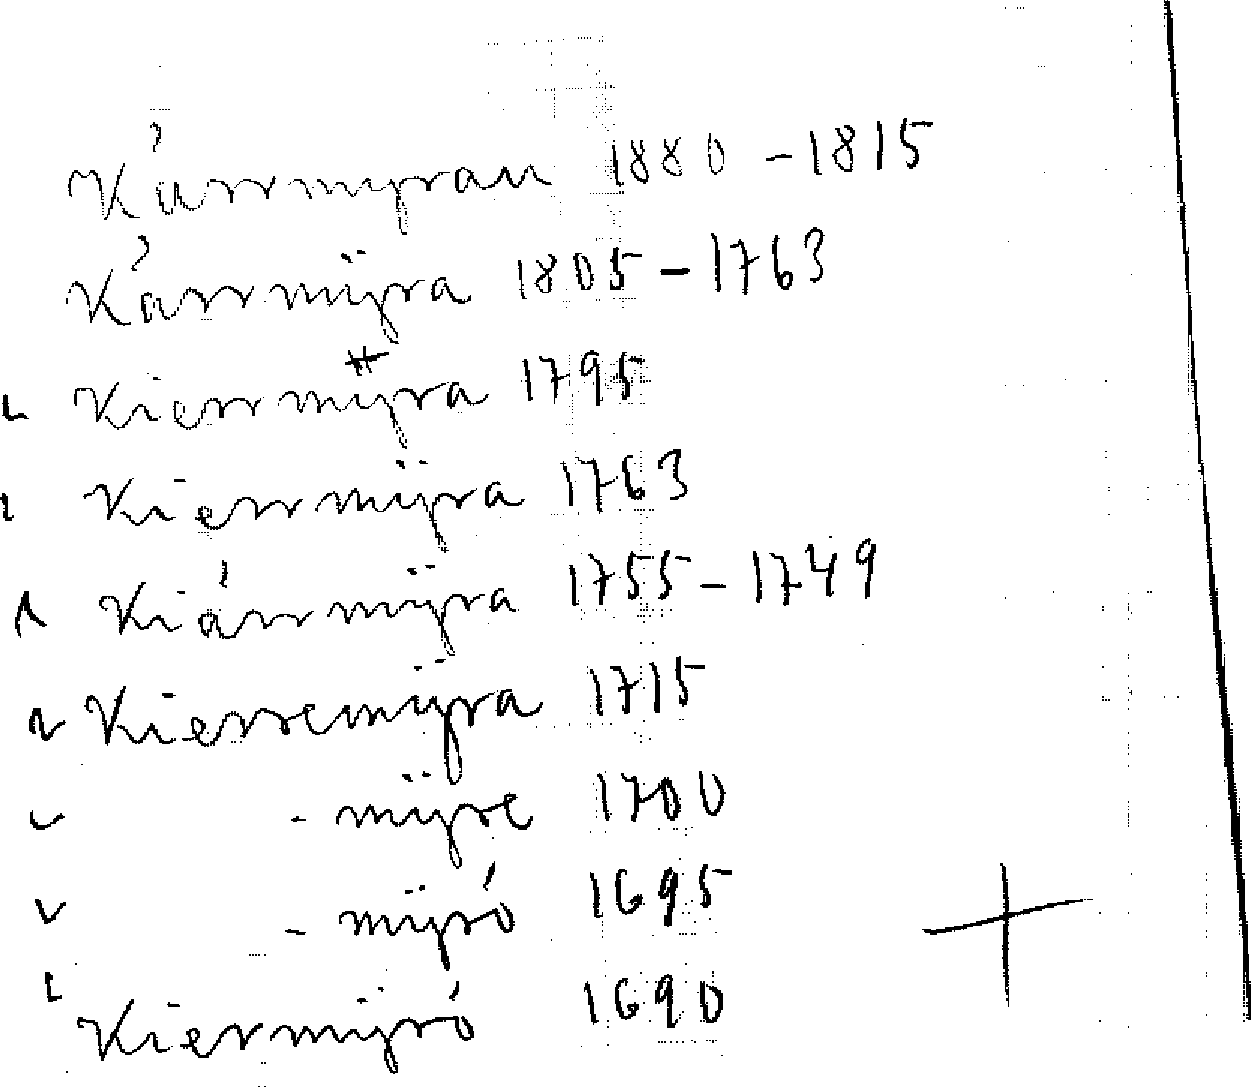 Kärrmyran 1880-1815
Kärrmÿra 1805-1763
Kierrmÿra 1795
Kierrmÿra 1763
Kiärrmÿra 1755-1749
Kierremÿra 1715
- mÿre 1700
- mÿró 1695
Kiermÿró 1690